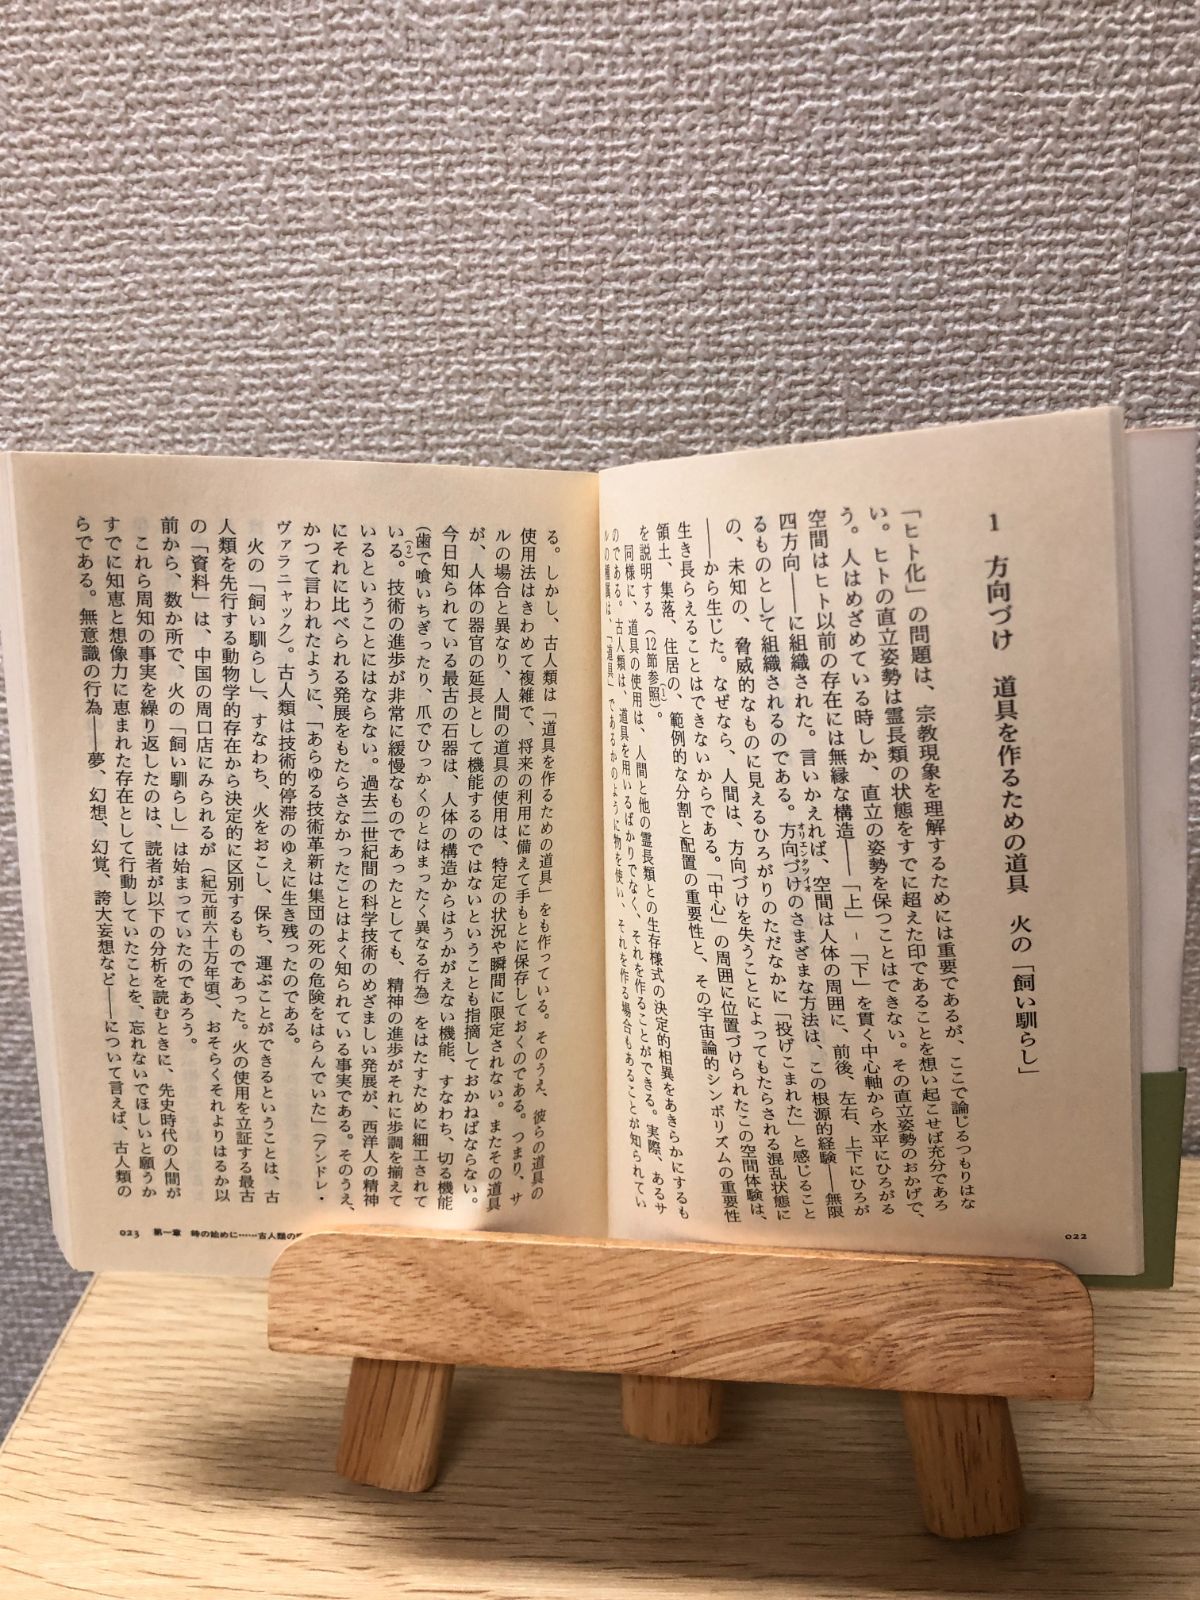 1 方向づけ 道具を作るための道具 火の「飼い馴らし」
「ヒト化」の問題は、宗教現象を理解するためには重要であるが、ここで論じるつもりはな
い。ヒトの直立姿勢は霊長類の状態をすでに超えた印であることを想い起こせば充分であろ
う。人はめざめている時しか、直立の姿勢を保つことはできない。その直立姿勢のおかげで、
空間はヒト以前の存在には無縁な構造——「上」-「下」を貫く中心軸から水平にひろがる
四方向——に組織された。言いかえれば、空間は人体の周囲に、前後、左右、上下にひろが
るものとして組織されるのである。方向づけオリエンタツィオのさまざまな方法は、この根源的経験——無限
の、未知の、脅威的なものに見えるひろがりのただなかに「投げこまれた」と感じること
——から生じた。なぜなら、人間は、方向づけを失うことによってもたらされる混乱状態に
生き長らえることはできないからである。「中心」の周囲に位置づけられたこの空間体験は、
領土、集落、住居の、範例的な分割と配置の重要性と、その宇宙論的シンボリズムの重要性
を説明する（12節参照）(1)。
同様に、道具の使用は、人間と他の霊長類との生存様式の決定的相異をあきらかにするも
のである。古人類は、道具を用いるばかりでなく、それを作ることができる。実際、あるサ
ルの種属は、「道具」であるかのように物を使い、それを作る場合もあることが知られてい
022
る。しかし、古人類は「道具を作るための道具」をも作っている。そのうえ、彼らの道具の
使用法はきわめて複雑で、将来の利用に備えて手もとに保存しておくのである。つまり、サ
ルの場合と異なり、人間の道具の使用は、特定の状況や瞬間に限定されない。またその道具
が、人体の器官の延長として機能するのではないということも指摘しておかねばならない。
今日知られている最古の石器は、人体の構造からはうかがえない機能、すなわち、切る機能
（歯で喰いちぎったり、爪でひっかくのとはまったく異なる行為）をはたすために細工されて
いる(2)。技術の進歩が非常に緩慢なものであったとしても、精神の進歩がそれに歩調を揃えて
いるということにはならない。過去二世紀間の科学技術のめざましい発展が、西洋人の精神
にそれに比べられる発展をもたらさなかったことはよく知られている事実である。そのうえ、
かつて言われたように、「あらゆる技術革新は集団の死の危険をはらんでいた」（アンドレ・
ヴァラニャック）。古人類は技術的停滞のゆえに生き残ったのである。
火の「飼い馴らし」、すなわち、火をおこし、保ち、運ぶことができるということは、古
人類を先行する動物学的存在から決定的に区別するものであった。火の使用を立証する最古
の「資料」は、中国の周口店にみられるが（紀元前六十万年頃）、おそらくそれよりはるか以
前から、数か所で、火の「飼い馴らし」は始まっていたのであろう。
これら周知の事実を繰り返したのは、読者が以下の分析を読むときに、先史時代の人間が
すでに知恵と想像力に恵まれた存在として行動していたことを、忘れないでほしいと願うか
らである。無意識の行為——夢、幻想、幻覚、誇大妄想など——について言えば、古人類の
023 第一章 時の始めに……古人類の